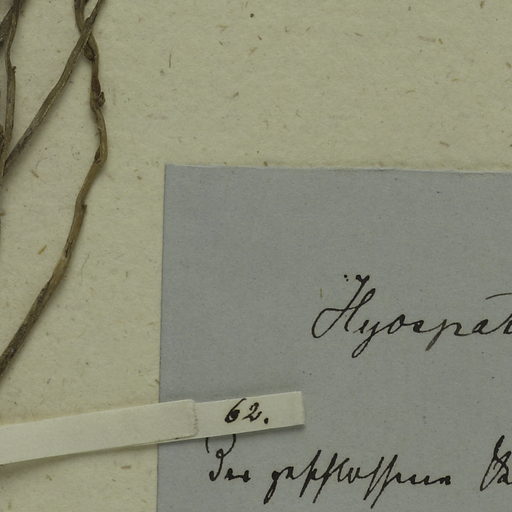 Hyospat
62.
Der geschlossene